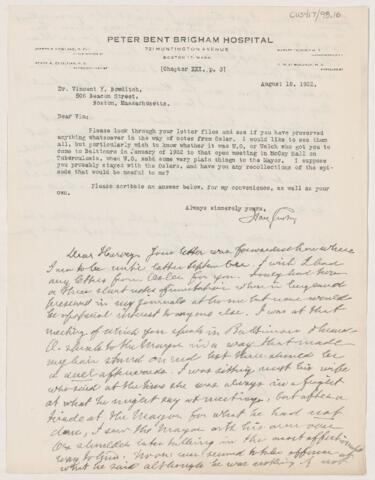 CUS417/98.16
PETER BENT BRIGHAM HOSPITAL
721 HUNTINGTON AVENUE
BOSTON 17, MASS.
[Chapter XXI, p. 3]
August 18, 1922.
Dr. Vincent Y. Bowditch,
506 Beacon Street,
Boston, Massachusetts.
Dear Vin:
Please look through your letter files and see if you have preserved
anything whatsoever in the way of notes from Osler. I would like to see them
all, but particularly wish to know whether it was W.O. or Welch who got you to
come to Baltimore in January of 1902 to that open meeting in McCoy Hall on
Tuberculosis, when W.O. said some very plain things to the Mayor. I suppose
you probably stayed with the Oslers, and have you any recollections of the epi-
sode that would be useful to me?
Please scribble an answer below, for my convenience, as well as your
own.
Always sincerely yours,
Dear Harvey: Your letter was forwarded here where
I am to be until latter September. I wish I had
any letters from Osler for you. I may have two
or three short notes of invitation when in England
preserved in my journals at home but none would
be of special interest to anyone else. I was at that
meeting of which you speak in Baltimore & heard
O. speak to the Mayor in a way that made
my hair stand on end lest there should be
a duel afterwards. I was sitting next his wife
who said at the time she was always in a fright
at what he might say at meetings, but after a
tirade at the Mayor for what he had not
done, I saw the Mayor with his arm over
O's shoulder later talking in the most affectionate
way to him. No one ever seemed to take offence at
what he said although he was nothing if not